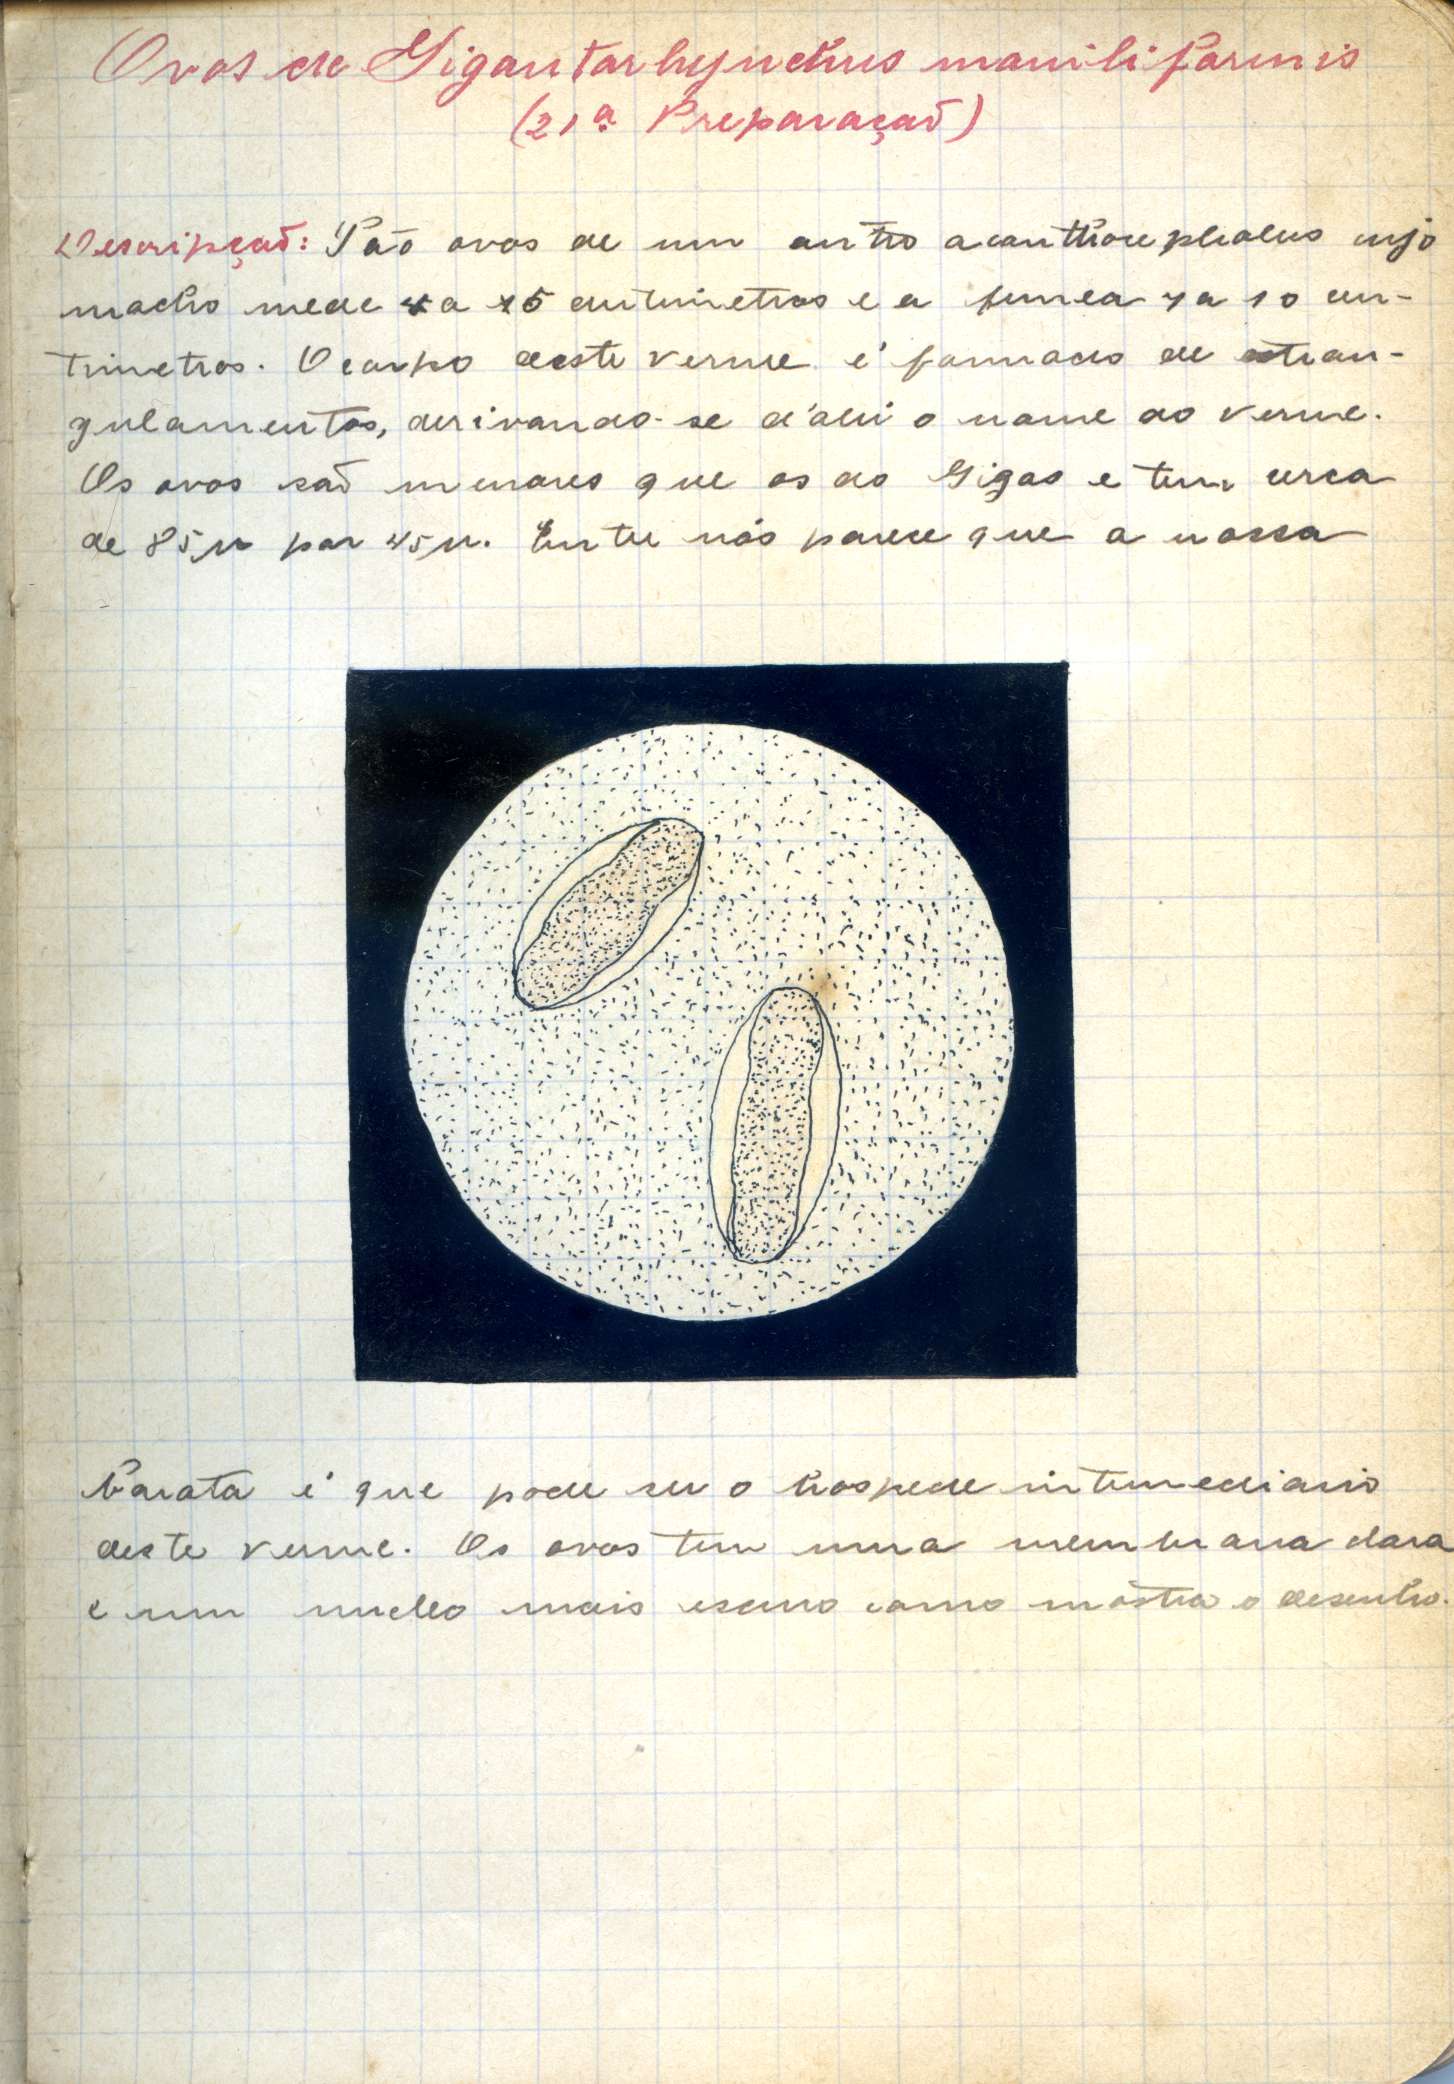 Ovos de Gigantorhynchus moniliformis
(21ª Preparação)
Descripção: São ovos de um outro acanthocephalus cujo
macho mede 4 a 5 centimetros e a femea 7 a 10 cen-
timetros. O corpo deste verme é formado de estran-
gulamentos, derivando-se d'ahi o nome do verme.
Os ovos são menores que os do Gigas e tem cerca
de 85µ por 45µ. Entre nós parece que a nossa
barata é que pode ser o hospede intermediario
deste verme. Os ovos tem uma membrana clara
e um nucleo mais escuro como móstra o desenho.